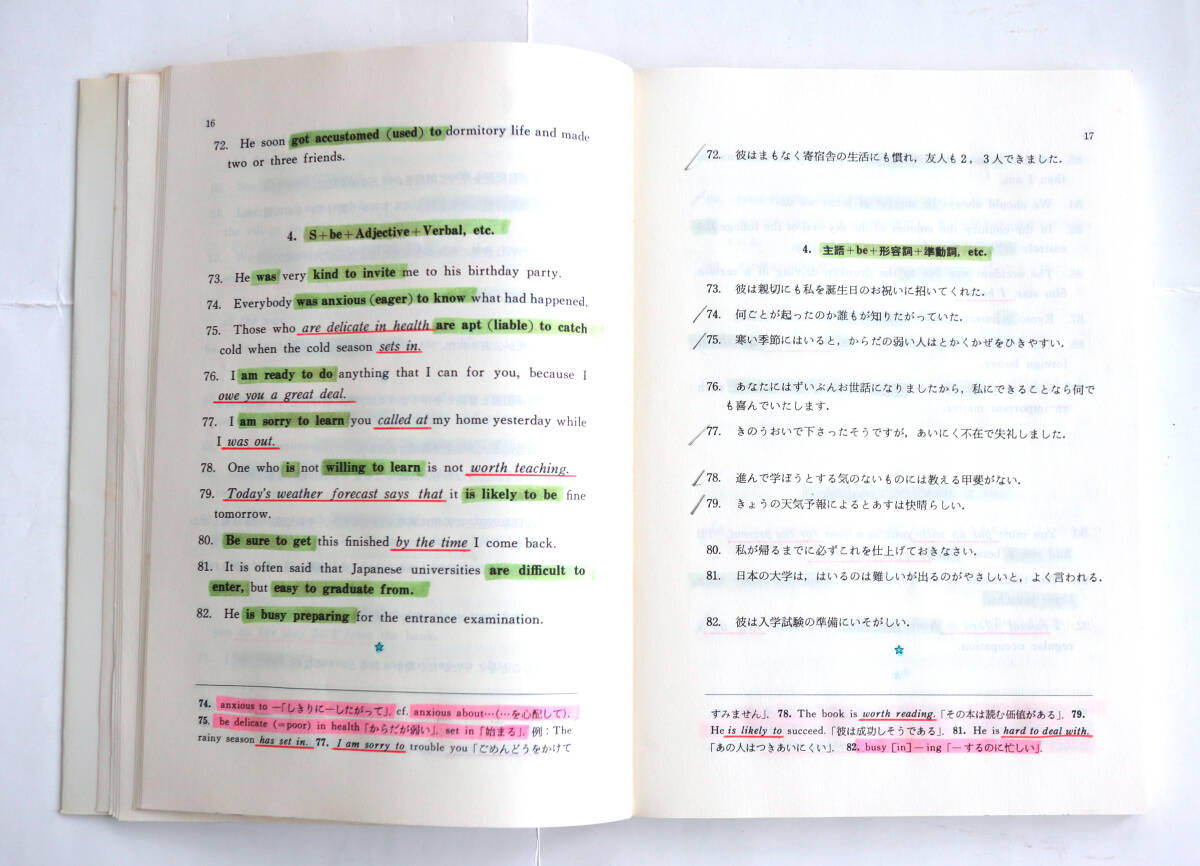 16
72. He soon got accustomed (used) to dormitory life and made
two or three friends.
4. S+be+Adjective+Verbal, etc.
73. He was very kind to invite me to his birthday party.
74. Everybody was anxious (eager) to know what had happened.
75. Those who are delicate in health are apt (liable) to catch
cold when the cold season sets in.
76. I am ready to do anything that I can for you, because I
owe you a great deal.
77. I am sorry to learn you called at my home yesterday while
I was out.
78. One who is not willing to learn is not worth teaching.
79. Today's weather forecast says that it is likely to be fine
tomorrow.
80. Be sure to get this finished by the time I come back.
81. It is often said that Japanese universities are difficult to
enter, but easy to graduate from.
82. He is busy preparing for the entrance examination.
74. anxious to ―「しきりに―したがって」. cf. anxious about…(…を心配して).
75. be delicate (=poor) in health「からだが弱い」. set in「始まる」. 例：The
rainy season has set in. 77. I am sorry to trouble you「ごめんどうをかけて
17
72. 彼はまもなく寄宿舎の生活にも慣れ，友人も2，3人できました．
4. 主語+be+形容詞+準動詞, etc.
73. 彼は親切にも私を誕生日のお祝いに招いてくれた．
74. 何ごとが起ったのか誰もが知りたがっていた．
75. 寒い季節にはいると，からだの弱い人はとかくかぜをひきやすい．
76. あなたにはずいぶんお世話になりましたから，私にできることなら何で
も喜んでいたします．
77. きのうおいで下さったそうですが，あいにく不在で失礼しました．
78. 進んで学ぼうとする気のないものには教える甲斐がない．
79. きょうの天気予報によるとあすは快晴らしい．
80. 私が帰るまでに必ずこれを仕上げておきなさい．
81. 日本の大学は，はいるのは難しいが出るのがやさしいと，よく言われる．
82. 彼は入学試験の準備にいそがしい．
すみません」. 78. The book is worth reading.「その本は読む価値がある」. 79.
He is likely to succeed.「彼は成功しそうである」. 81. He is hard to deal with.
「あの人はつきあいにくい」. 82. busy [in] ―ing「―するのに忙しい」.